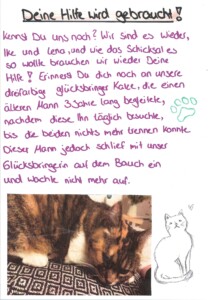 Deine Hilfe wird gebraucht!
Kennst Du uns noch? Wir sind es wieder,
Ike und Lena, und wie das Schicksal es
so wollte brauchen wir wieder Deine
Hilfe! Erinnerst Du dich noch an unsere
dreifarbig glücksbringer Katze, die einen
älteren Mann 3 Jahre lang begleitete,
nachdem diese Ihn täglich besuchte,
bis die beiden nichts mehr trennen konnte.
Dieser Mann jedoch schlief mit unser
Glücksbringerin auf dem Bauch ein
und wachte nicht mehr auf.